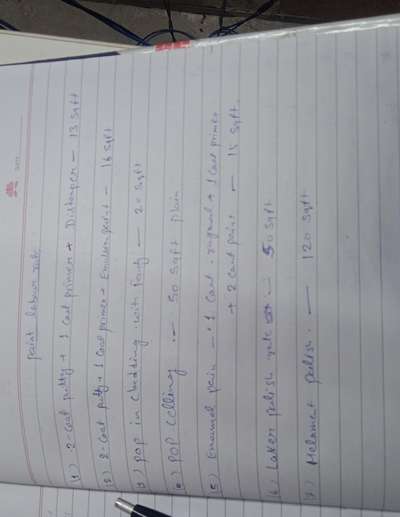 paint labour rate
(1) 2-Coat putty + 1 Coat primer + Distemper - 13 sqft
(2) 2-Coat putty + 1 Coat primer + Emulsion paint - 16 sqft
3) pop in chedding with Party - 20 sqft
) pop celling - 50 sqft plain
5) Enamel pain - 1 Coat + 1 Coat primer
+ 2 Coat paint - 15 sqft.
(6) Laker polish rate - 50 sqft
(7) Melamet polish. - 120 sqft